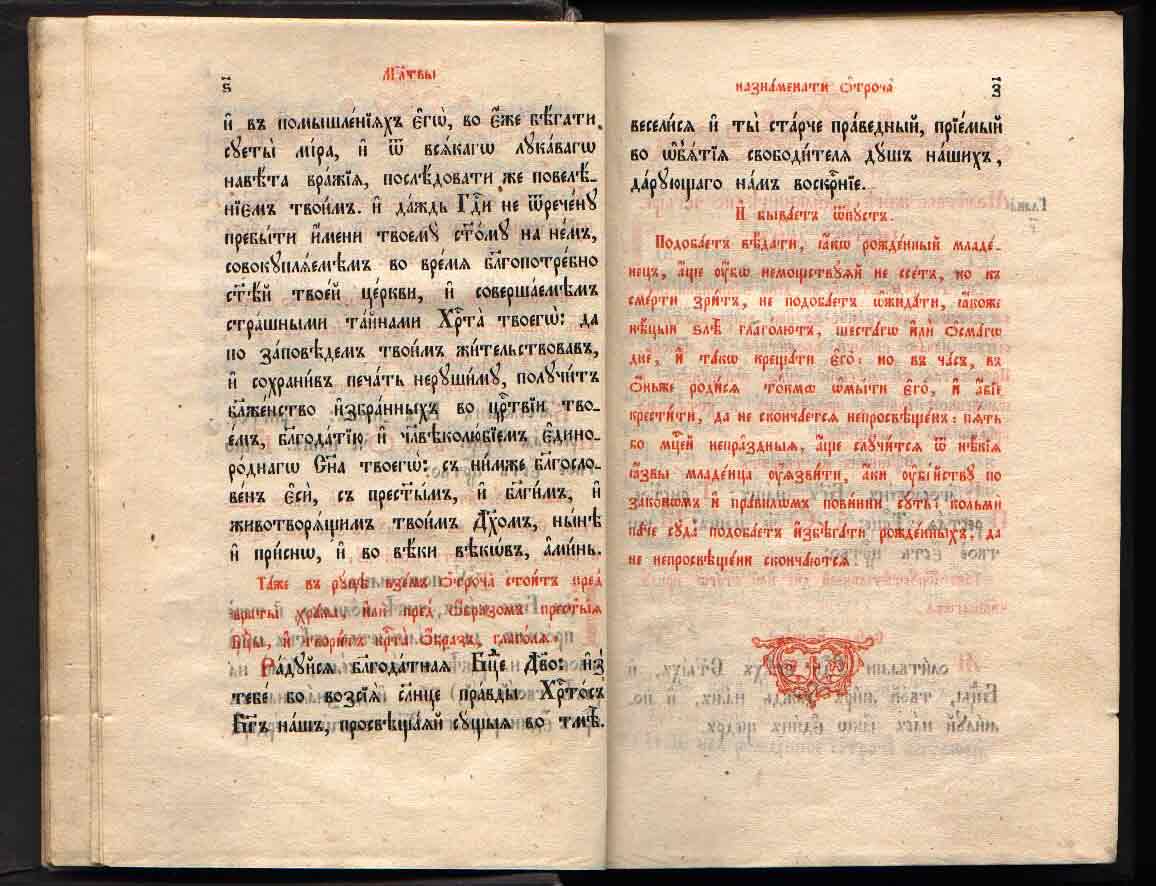 ѕ҃
Мл҃твы
и҆ въ помышле́нїѧхъ є҆гѡ̀, во є҆́же бѣ́гати
сꙋеты̀ мі́ра, и҆ ѿ всѧ́кагѡ лꙋка́вагѡ
навѣ́та вра́жїѧ, послѣ́довати же повелѣ́-
нїємъ твои̑мъ. и҆ да́ждь Гдⷭ҇и не ѿрече́нꙋ
пребы́ти и҆́мени твоемꙋ̀ ст҃о́мꙋ на не́мъ,
совокꙋплѧ́емѣмъ во вре́мѧ бл҃гопотре́бно
ст҃ѣ́й твое́й це́ркви, и҆ соверша́емѣмъ
стра́шными та́йнами Хрⷭ҇та̀ твоегѡ̀: да
по за́повѣдемъ твои́мъ жи́тельствовавъ,
и҆ сохрани́въ печа́ть нерꙋши́мꙋ, полꙋчи́тъ
бл҃же́нство и҆збра́нныхъ во црⷭ҇твїи тво-
е́мъ, бл҃года́тїю и҆ чл҃вѣколю́бїемъ є҆дино-
ро́днагѡ Сн҃а твоегѡ̀: съ ни́мже бл҃госло-
ве́нъ є҆сѝ, съ прест҃ы́мъ, и҆ бл҃ги́мъ, и҆
животворѧ́щимъ твои́мъ Дх҃омъ, ны́нѣ
и҆ при́снѡ, и҆ во вѣ́ки вѣкѡ́въ, а҆ми́нь.
Та́же въ рꙋцѣ̀ взе́мъ ѻ҆троча̀ стои́тъ пред̾
враты̀ хра́ма, и҆лѝ пред̾ ѡ҆́бразомъ прест҃ы́ѧ
Бц҃ы, и҆ твори́тъ крⷭ҇та̀ ѻ҆́бразъ, глаго́лѧ:
Ра́дꙋйсѧ бл҃года́тнаѧ Бц҃е Дв҃о: и҆з̾
тебе́ бо возсїѧ̀ сл҃нце пра́вды Хрⷭ҇то́съ
Бг҃ъ на́шъ, просвѣща́ѧй сꙋ́щыѧ во тмѣ̀.
назна́менати ѻ҆троча̀
з҃
весели́сѧ и҆ ты̀ ста́рче пра́ведный, прїе́мый
во ѡ҆б̾ѧ́тїѧ свободи́телѧ дꙋ́шъ на́шихъ,
да́рꙋющаго на́мъ воскрⷭ҇нїе.
И҆ быва́етъ ѿпꙋ́стъ.
Подоба́етъ вѣ́дати, ꙗ҆́кѡ рожде́нный младе́-
нецъ, а҆́ще ᲂу҆́бѡ немощствꙋ́ѧй не ссе́тъ, но къ
сме́рти зри́тъ, не подоба́етъ ѡ҆жида́ти, ꙗ҆́коже
нѣ́цыи ѕлѣ̀ глаго́лютъ, шеста́гѡ и҆лѝ ѻ҆сма́гѡ
днѐ, и҆ та́кѡ креща́ти є҆го̀: но въ ча́съ, въ
ѻ҆́ньже роди́сѧ то́кмѡ ѡ҆мы́ти є҆го̀, и҆ а҆́бїе
крести́ти, да не сконча́етсѧ непросвѣще́нъ: пѧ́ть
бо мц҃ей непра́здныѧ, а҆́ще слꙋчи́тсѧ ѿ нѣ́кїѧ
ꙗ҆́звы младе́нца ᲂу҆ѧзви́ти, а҆́ки ᲂу҆бі́йствꙋ по
зако́нѡмъ и҆ пра́вилѡмъ пови́нни сꙋ́ть: кольмѝ
па́че сꙋда̀ подоба́етъ и҆збѣ́гати рожде́нныхъ, да
не непросвѣще́ни сконча́ютсѧ.